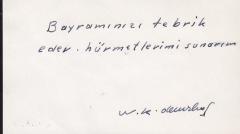 Bayramınızı tebrik
eder. hürmetlerimi sunarım